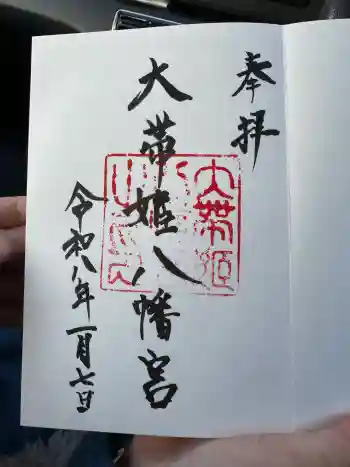 奉拝
大帯姫八幡宮
令和八年一月七日
大帯姫